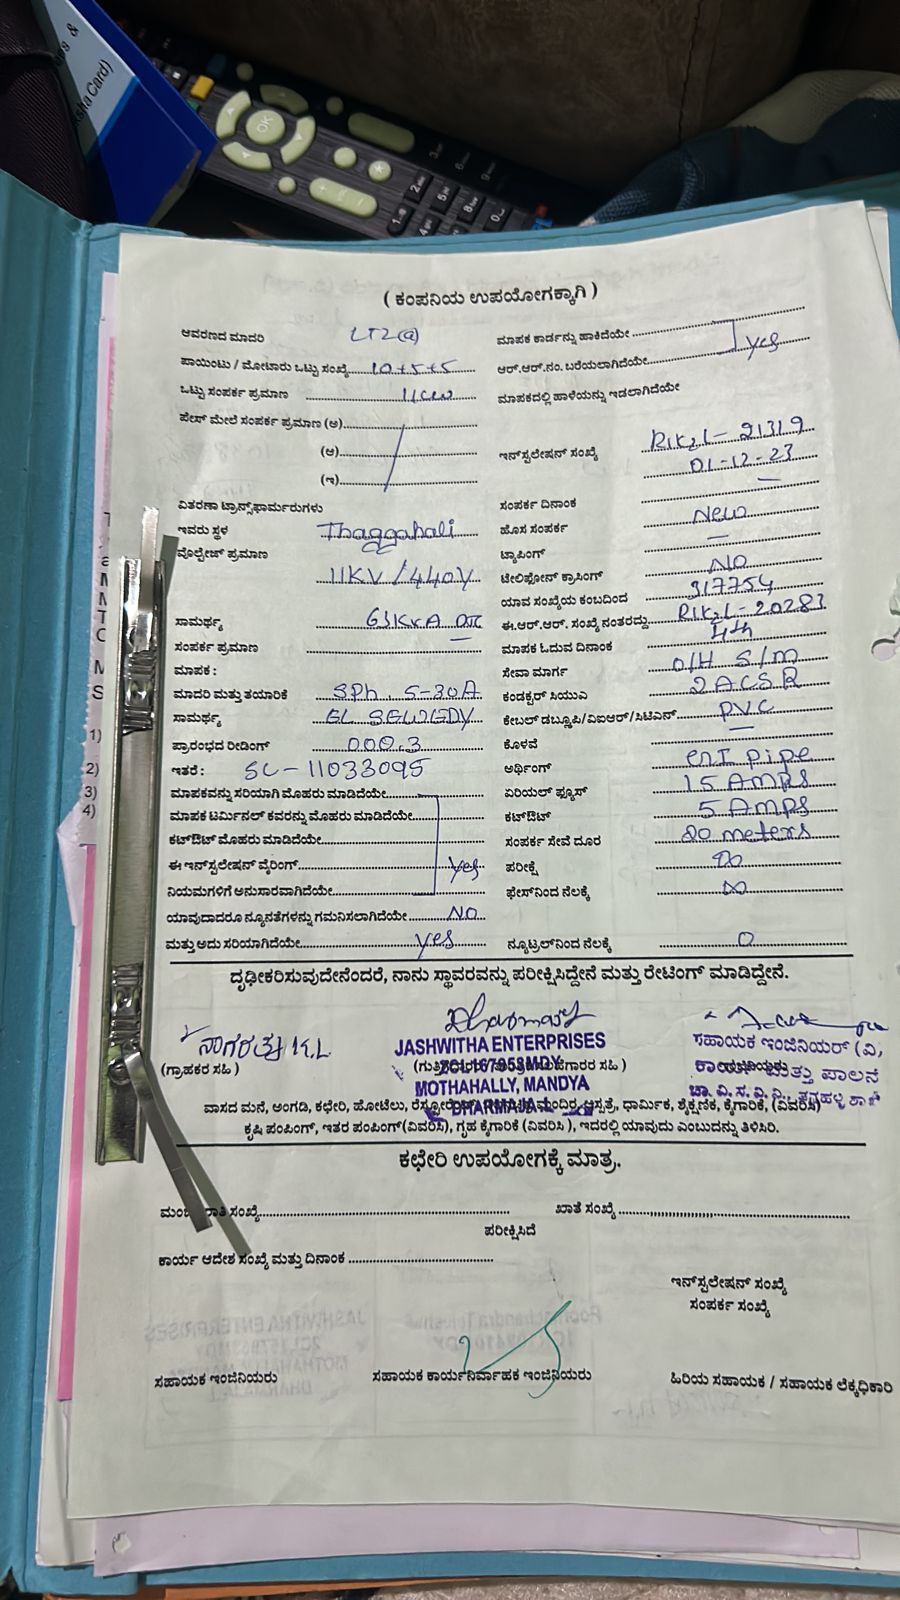 ( ಕಂಪನಿಯ ಉಪಯೋಗಕ್ಕಾಗಿ )
ಆವರಣದ ಮಾದರಿ LT2(a)
ಪಾಯಿಂಟು / ಮೋಟಾರು ಒಟ್ಟು ಸಂಖ್ಯೆ 10+5+5
ಒಟ್ಟು ಸಂಪರ್ಕ ಪ್ರಮಾಣ
ಪೇಸ್ ಮೇಲೆ ಸಂಪರ್ಕ ಪ್ರಮಾಣ (ಅ)
(ಆ)
(ಇ)
ವಿತರಣಾ ಟ್ರಾನ್ಸ್‌ಫಾರ್ಮರುಗಳು
ಇವರು ಸ್ಥಳ Thaggahali
ವೊಲ್ಟೇಜ್ ಪ್ರಮಾಣ
11KV / 440V
ಸಾಮರ್ಥ್ಯ
ಸಂಪರ್ಕ ಪ್ರಮಾಣ
ಮಾಪಕ :
ಮಾದರಿ ಮತ್ತು ತಯಾರಿಕೆ SPh. 5-30A
ಸಾಮರ್ಥ್ಯ
ಪ್ರಾರಂಭದ ರೀಡಿಂಗ್ 000.3
ಇತರೆ : SL-11033095
ಮಾಪಕವನ್ನು ಸರಿಯಾಗಿ ಮೊಹರು ಮಾಡಿದೆಯೇ
ಮಾಪಕ ಟರ್ಮಿನಲ್ ಕವರನ್ನು ಮೊಹರು ಮಾಡಿದೆಯೇ
ಕಟ್‌ಔಟ್ ಮೊಹರು ಮಾಡಿದೆಯೇ
ಈ ಇನ್‌ಸ್ಟಲೇಷನ್ ವೈರಿಂಗ್ yes
ನಿಯಮಗಳಿಗೆ ಅನುಸಾರವಾಗಿದೆಯೇ
ಯಾವುದಾದರೂ ನ್ಯೂನತೆಗಳನ್ನು ಗಮನಿಸಲಾಗಿದೆಯೇ NO
ಮತ್ತು ಅದು ಸರಿಯಾಗಿದೆಯೇ yes
ಮಾಪಕ ಕಾರ್ಡನ್ನು ಹಾಕಿದೆಯೇ
ಆರ್.ಆರ್.ನಂ. ಬರೆಯಲಾಗಿದೆಯೇ yes
ಮಾಪಕದಲ್ಲಿ ಹಾಳೆಯನ್ನು ಇಡಲಾಗಿದೆಯೇ
ಇನ್‌ಸ್ಟಲೇಷನ್ ಸಂಖ್ಯೆ 21319
01-12-23
ಸಂಪರ್ಕ ದಿನಾಂಕ
ಹೊಸ ಸಂಪರ್ಕ New
ಟ್ಯಾಪಿಂಗ್
ಟೆಲಿಫೋನ್ ಕ್ರಾಸಿಂಗ್ NO
ಯಾವ ಸಂಖ್ಯೆಯ ಕಂಬದಿಂದ 317754
ಈ.ಆರ್.ಆರ್. ಸಂಖ್ಯೆ ನಂತರದ್ದು 20283
ಮಾಪಕ ಓದುವ ದಿನಾಂಕ 4th
ಸೇವಾ ಮಾರ್ಗ O/H S/M
ಕಂಡಕ್ಟರ್ ಸಿಯುವಿ 2 ACSR
ಕೇಬಲ್ ಡಬ್ಲೂಪಿ/ವಿಐಆರ್/ಸಿಟಿಎಸ್ PVC
ಕೊಳವೆ
ಅರ್ಥಿಂಗ್ pipe
ಏರಿಯಲ್ ಫ್ಯೂಸ್ 15 Amps
ಕಟ್‌ಔಟ್ 5 Amps
ಸಂಪರ್ಕ ಸೇವೆ ದೂರ 20 meters
ಪರೀಕ್ಷೆ ∞
ಫೇಸ್‌ನಿಂದ ನೆಲಕ್ಕೆ ∞
ನ್ಯೂಟ್ರಲ್‌ನಿಂದ ನೆಲಕ್ಕೆ 0
ದೃಢೀಕರಿಸುವುದೇನೆಂದರೆ, ನಾನು ಸ್ಥಾವರವನ್ನು ಪರೀಕ್ಷಿಸಿದ್ದೇನೆ ಮತ್ತು ರೇಟಿಂಗ್ ಮಾಡಿದ್ದೇನೆ.
ನಾಗರತ್ನ K.L
(ಗ್ರಾಹಕರ ಸಹಿ )
JASHWITHA ENTERPRISES
MOTHAHALLY, MANDYA
ಸಹಾಯಕ ಇಂಜಿನಿಯರ್ (ವಿ,
ಮತ್ತು ಪಾಲನೆ
ವಾಸದ ಮನೆ, ಅಂಗಡಿ, ಕಛೇರಿ, ಹೋಟೆಲು, ಆಸ್ಪತ್ರೆ, ಧಾರ್ಮಿಕ, ಶೈಕ್ಷಣಿಕ, ಕೈಗಾರಿಕೆ, (ವಿವರಿಸಿ)
ಕೃಷಿ ಪಂಪಿಂಗ್, ಇತರ ಪಂಪಿಂಗ್(ವಿವರಿಸಿ), ಗೃಹ ಕೈಗಾರಿಕೆ (ವಿವರಿಸಿ ), ಇದರಲ್ಲಿ ಯಾವುದು ಎಂಬುದನ್ನು ತಿಳಿಸಿರಿ.
ಕಛೇರಿ ಉಪಯೋಗಕ್ಕೆ ಮಾತ್ರ.
ಸಂಖ್ಯೆ ಖಾತೆ ಸಂಖ್ಯೆ
ಪರೀಕ್ಷಿಸಿದೆ
ಕಾರ್ಯ ಆದೇಶ ಸಂಖ್ಯೆ ಮತ್ತು ದಿನಾಂಕ
ಇನ್‌ಸ್ಟಲೇಷನ್ ಸಂಖ್ಯೆ
ಸಂಪರ್ಕ ಸಂಖ್ಯೆ
ಸಹಾಯಕ ಇಂಜಿನಿಯರು ಸಹಾಯಕ ಕಾರ್ಯನಿರ್ವಾಹಕ ಇಂಜಿನಿಯರು ಹಿರಿಯ ಸಹಾಯಕ / ಸಹಾಯಕ ಲೆಕ್ಕಧಿಕಾರಿ